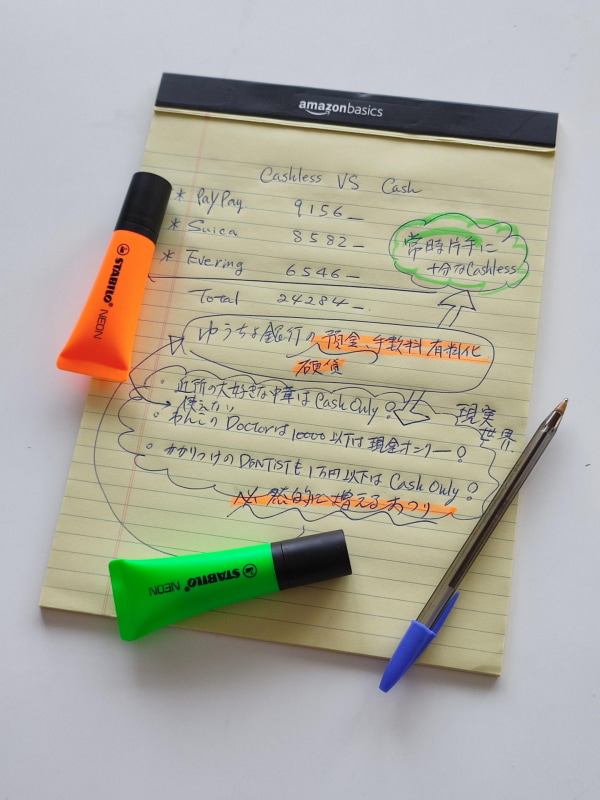 amazonbasics
Cashless VS Cash
* PayPay 9156_
* Suica 8582_
* Evering 6546_
Total 24284_.
常時片手に
十分なCashless
ゆうちょ銀行の預金、手数料有料化
硬貨
・近所の大好きな中華はCash Only?
使えない
現実
世界
・わんこのDoctorは10000以下は現金オンリー?
・かかりつけのDENTISTも1万円以下はCash Only?
必然的に増えるおつり
STABILO NEON
STABILO NEON